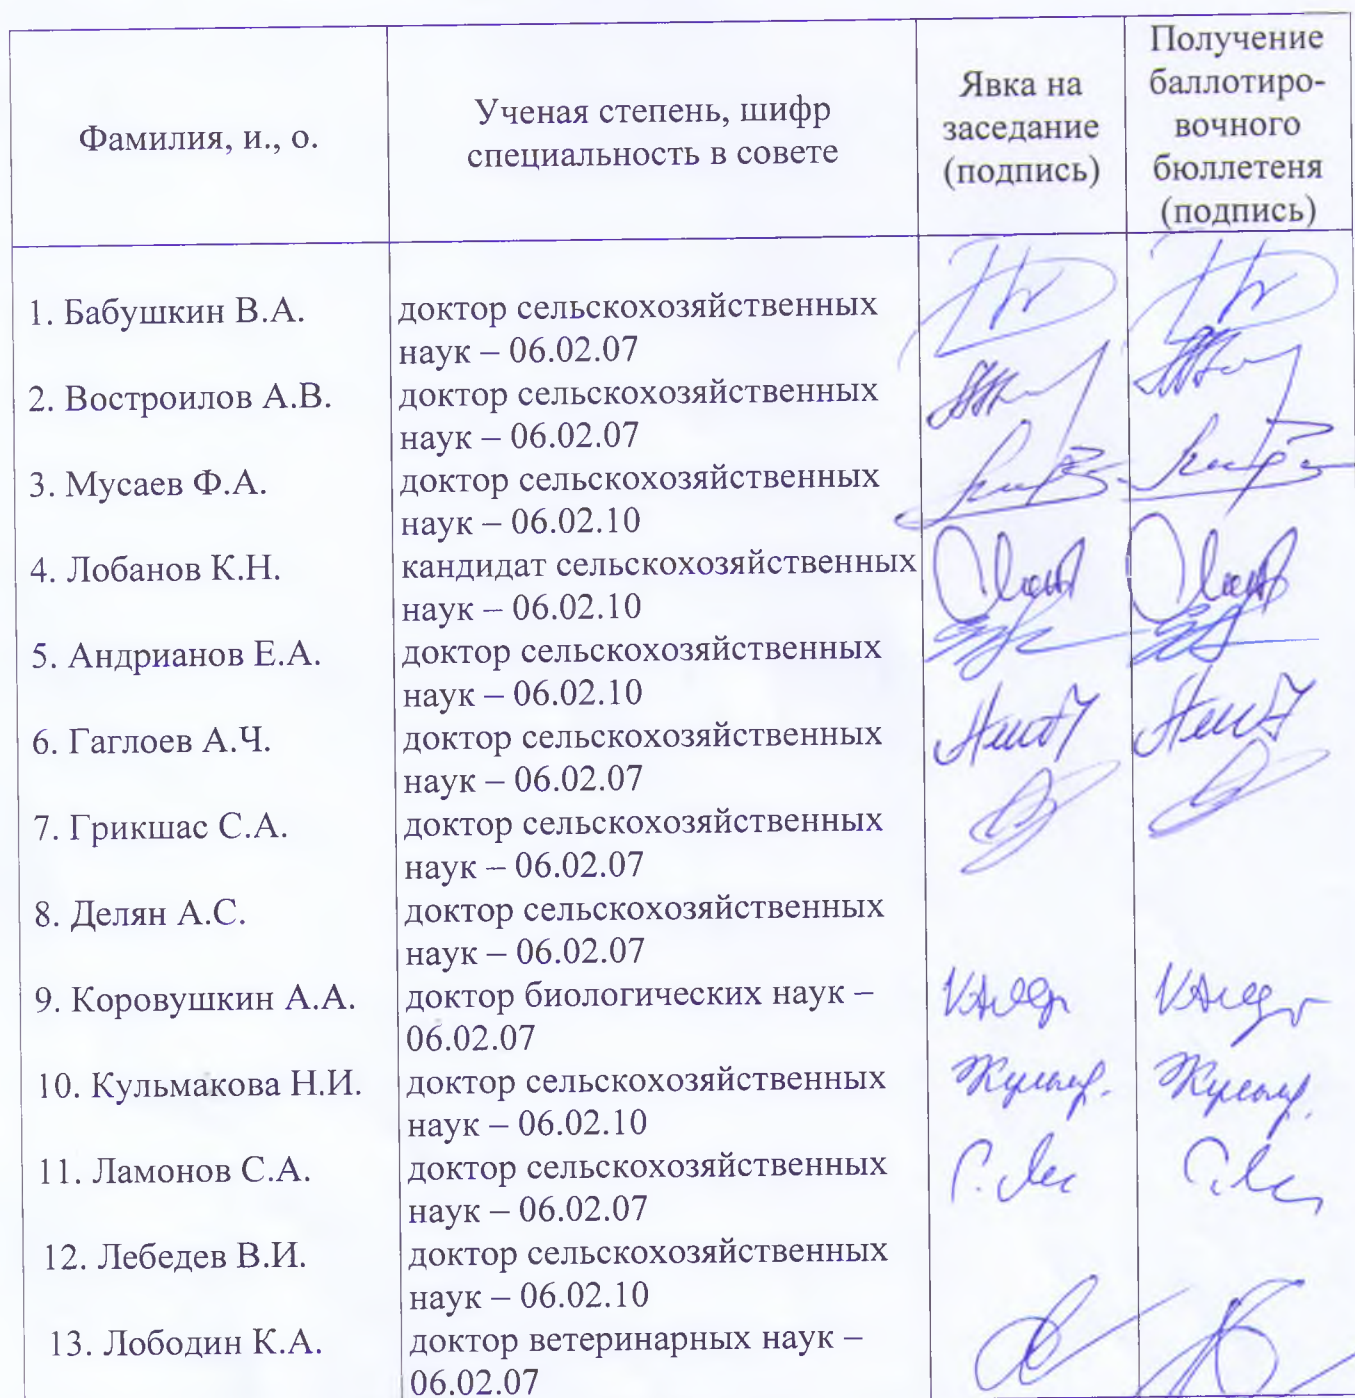 Фамилия, и., о.
Ученая степень, шифр
специальность в совете
Явка на
заседание
(подпись)
Получение
баллотиро-
вочного
бюллетеня
(подпись)
1. Бабушкин В.А.
доктор сельскохозяйственных
наук – 06.02.07
2. Востроилов А.В.
доктор сельскохозяйственных
наук – 06.02.07
3. Мусаев Ф.А.
доктор сельскохозяйственных
наук – 06.02.10
4. Лобанов К.Н.
кандидат сельскохозяйственных
наук – 06.02.10
5. Андрианов Е.А.
доктор сельскохозяйственных
наук – 06.02.10
6. Гаглоев А.Ч.
доктор сельскохозяйственных
наук – 06.02.07
7. Грикшас С.А.
доктор сельскохозяйственных
наук – 06.02.07
8. Делян А.С.
доктор сельскохозяйственных
наук – 06.02.07
9. Коровушкин А.А.
доктор биологических наук –
06.02.07
10. Кульмакова Н.И.
доктор сельскохозяйственных
наук – 06.02.10
11. Ламонов С.А.
доктор сельскохозяйственных
наук – 06.02.07
12. Лебедев В.И.
доктор сельскохозяйственных
наук – 06.02.10
13. Лободин К.А.
доктор ветеринарных наук –
06.02.07